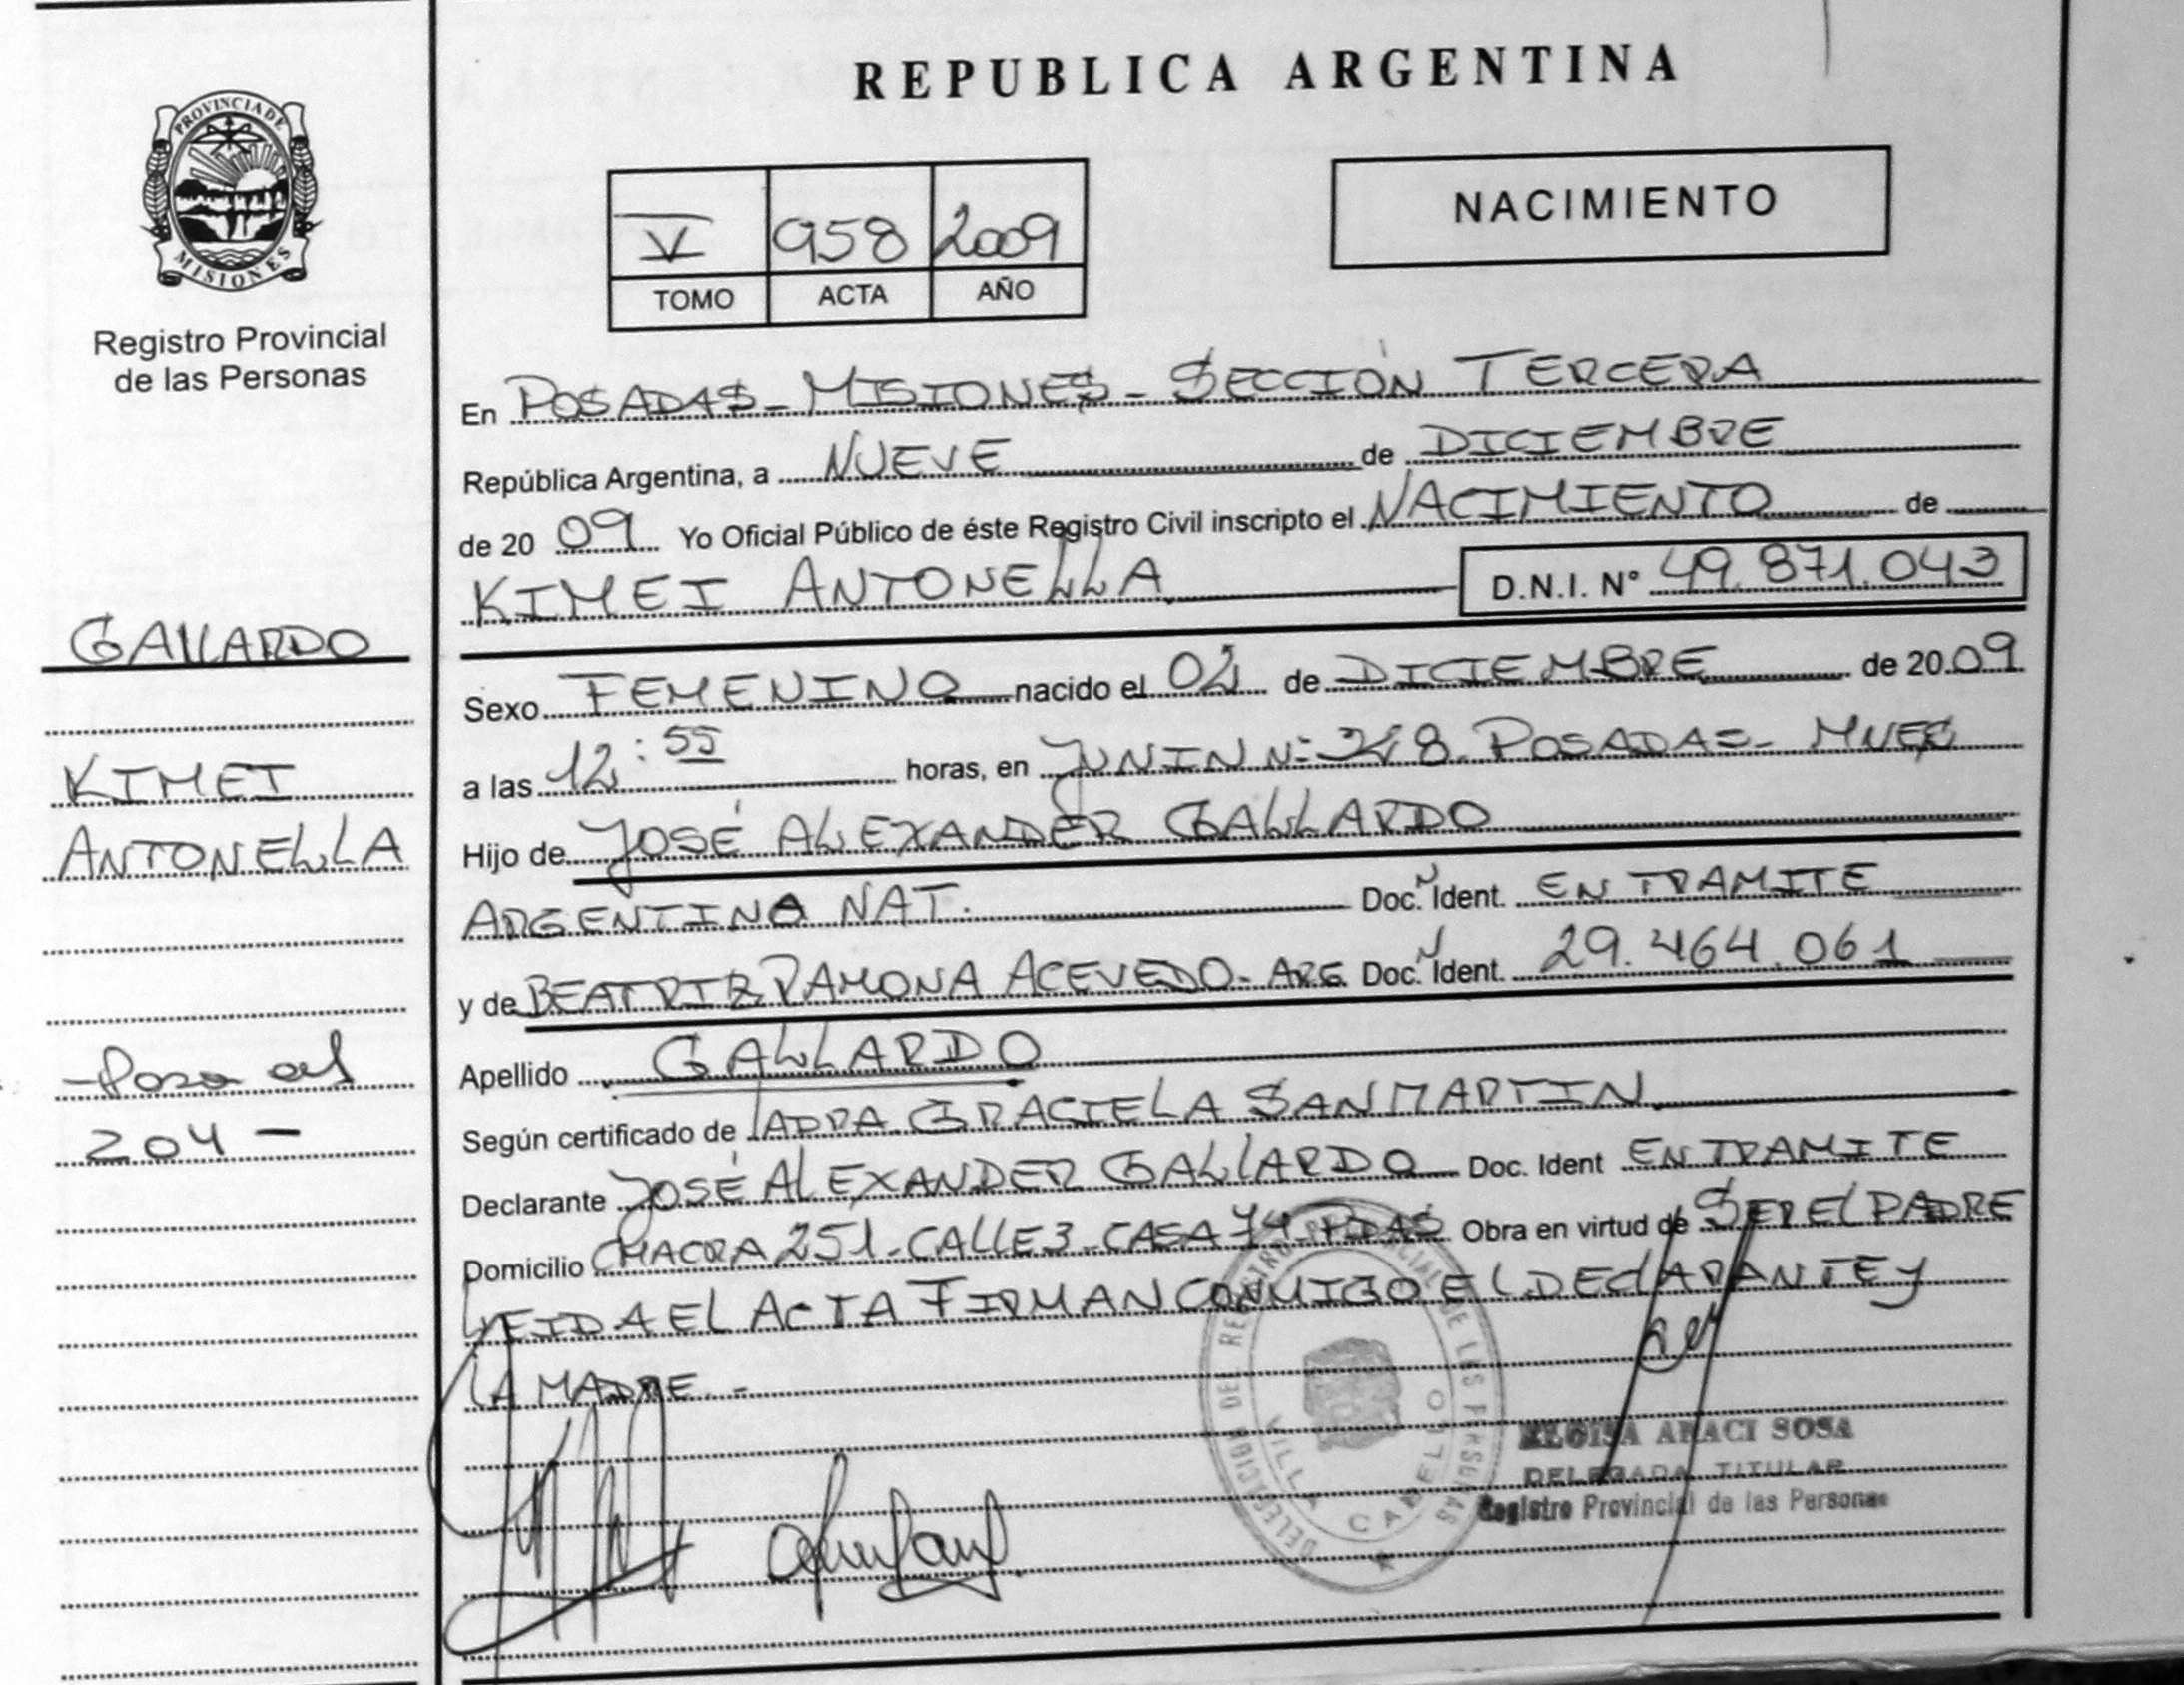 PROVINCIA DE
MISIONES
Registro Provincial
de las Personas
GALLARDO
KIMEI
ANTONELLA
- Pasa al
204 -
REPUBLICA ARGENTINA
V 958 2009
TOMO ACTA AÑO
NACIMIENTO
En POSADAS - MISIONES - SECCIÓN TERCERA
República Argentina, a NUEVE de DICIEMBRE
de 2009 Yo Oficial Público de éste Registro Civil inscripto el NACIMIENTO de
KIMEI ANTONELLA D.N.I. N° 49.871.043
Sexo FEMENINO nacido el de DICIEMBRE de 2009
a las 12:55 horas, en JUNIN N: POSADAS - MNES
Hijo de JOSÉ ALEXANDER GALLARDO
ARGENTINO NAT. Doc. Ident. EN TRAMITE
y de BEATRIZ RAMONA ACEVEDO - ARG Doc. Ident. 29.464.061
Apellido GALLARDO
Según certificado de GRACIELA SANMARTIN
Declarante JOSÉ ALEXANDER GALLARDO Doc. Ident EN TRAMITE
Domicilio CHACRA 251 - CALLE 3 - CASA 74 - PDAS Obra en virtud de SER EL PADRE
LEIDA EL ACTA FIRMAN CONMIGO EL DECLARANTE y
LA MADRE. -
DELEGACION DEL REGISTRO PROVINCIAL DE LAS PERSONAS
VILLA CABELLO
ARACI SOSA
DELEGADA TITULAR
Registro Provincial de las Personas